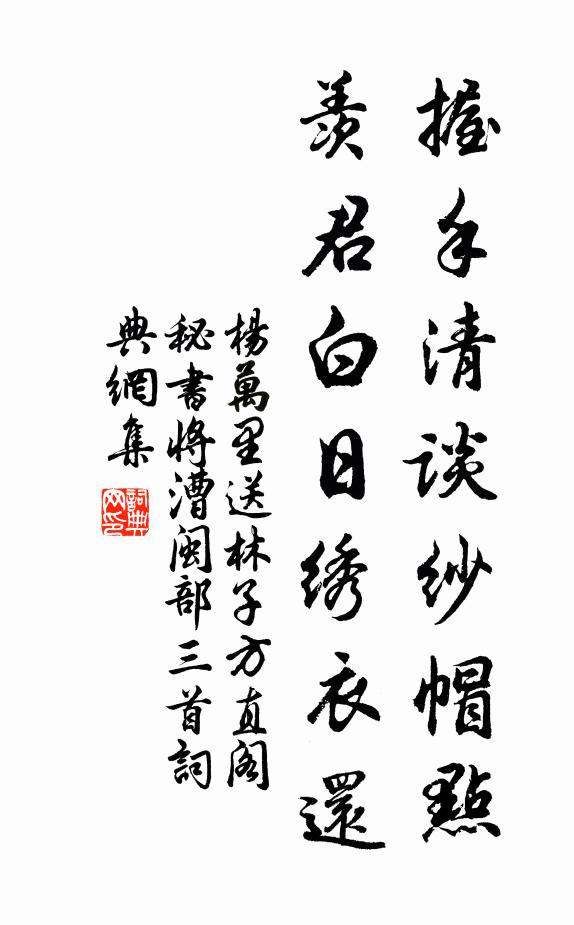 握手清談紗帽點
羨君白日绣衣還
楊萬里送林子方直閣
秘書將漕閩部三首詞
典網集
詞典網印